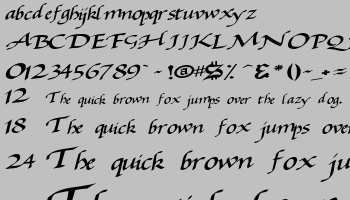 abcdefghijklmnopqrstuvwxyz
ABCDEFGHIJKLMNOPQ
0123456789` - !@#$% ^&*()-_+=
12 The quick brown fox jumps over the lazy dog.
18 The quick brown fox jumps over
24 The quick brown fox ju